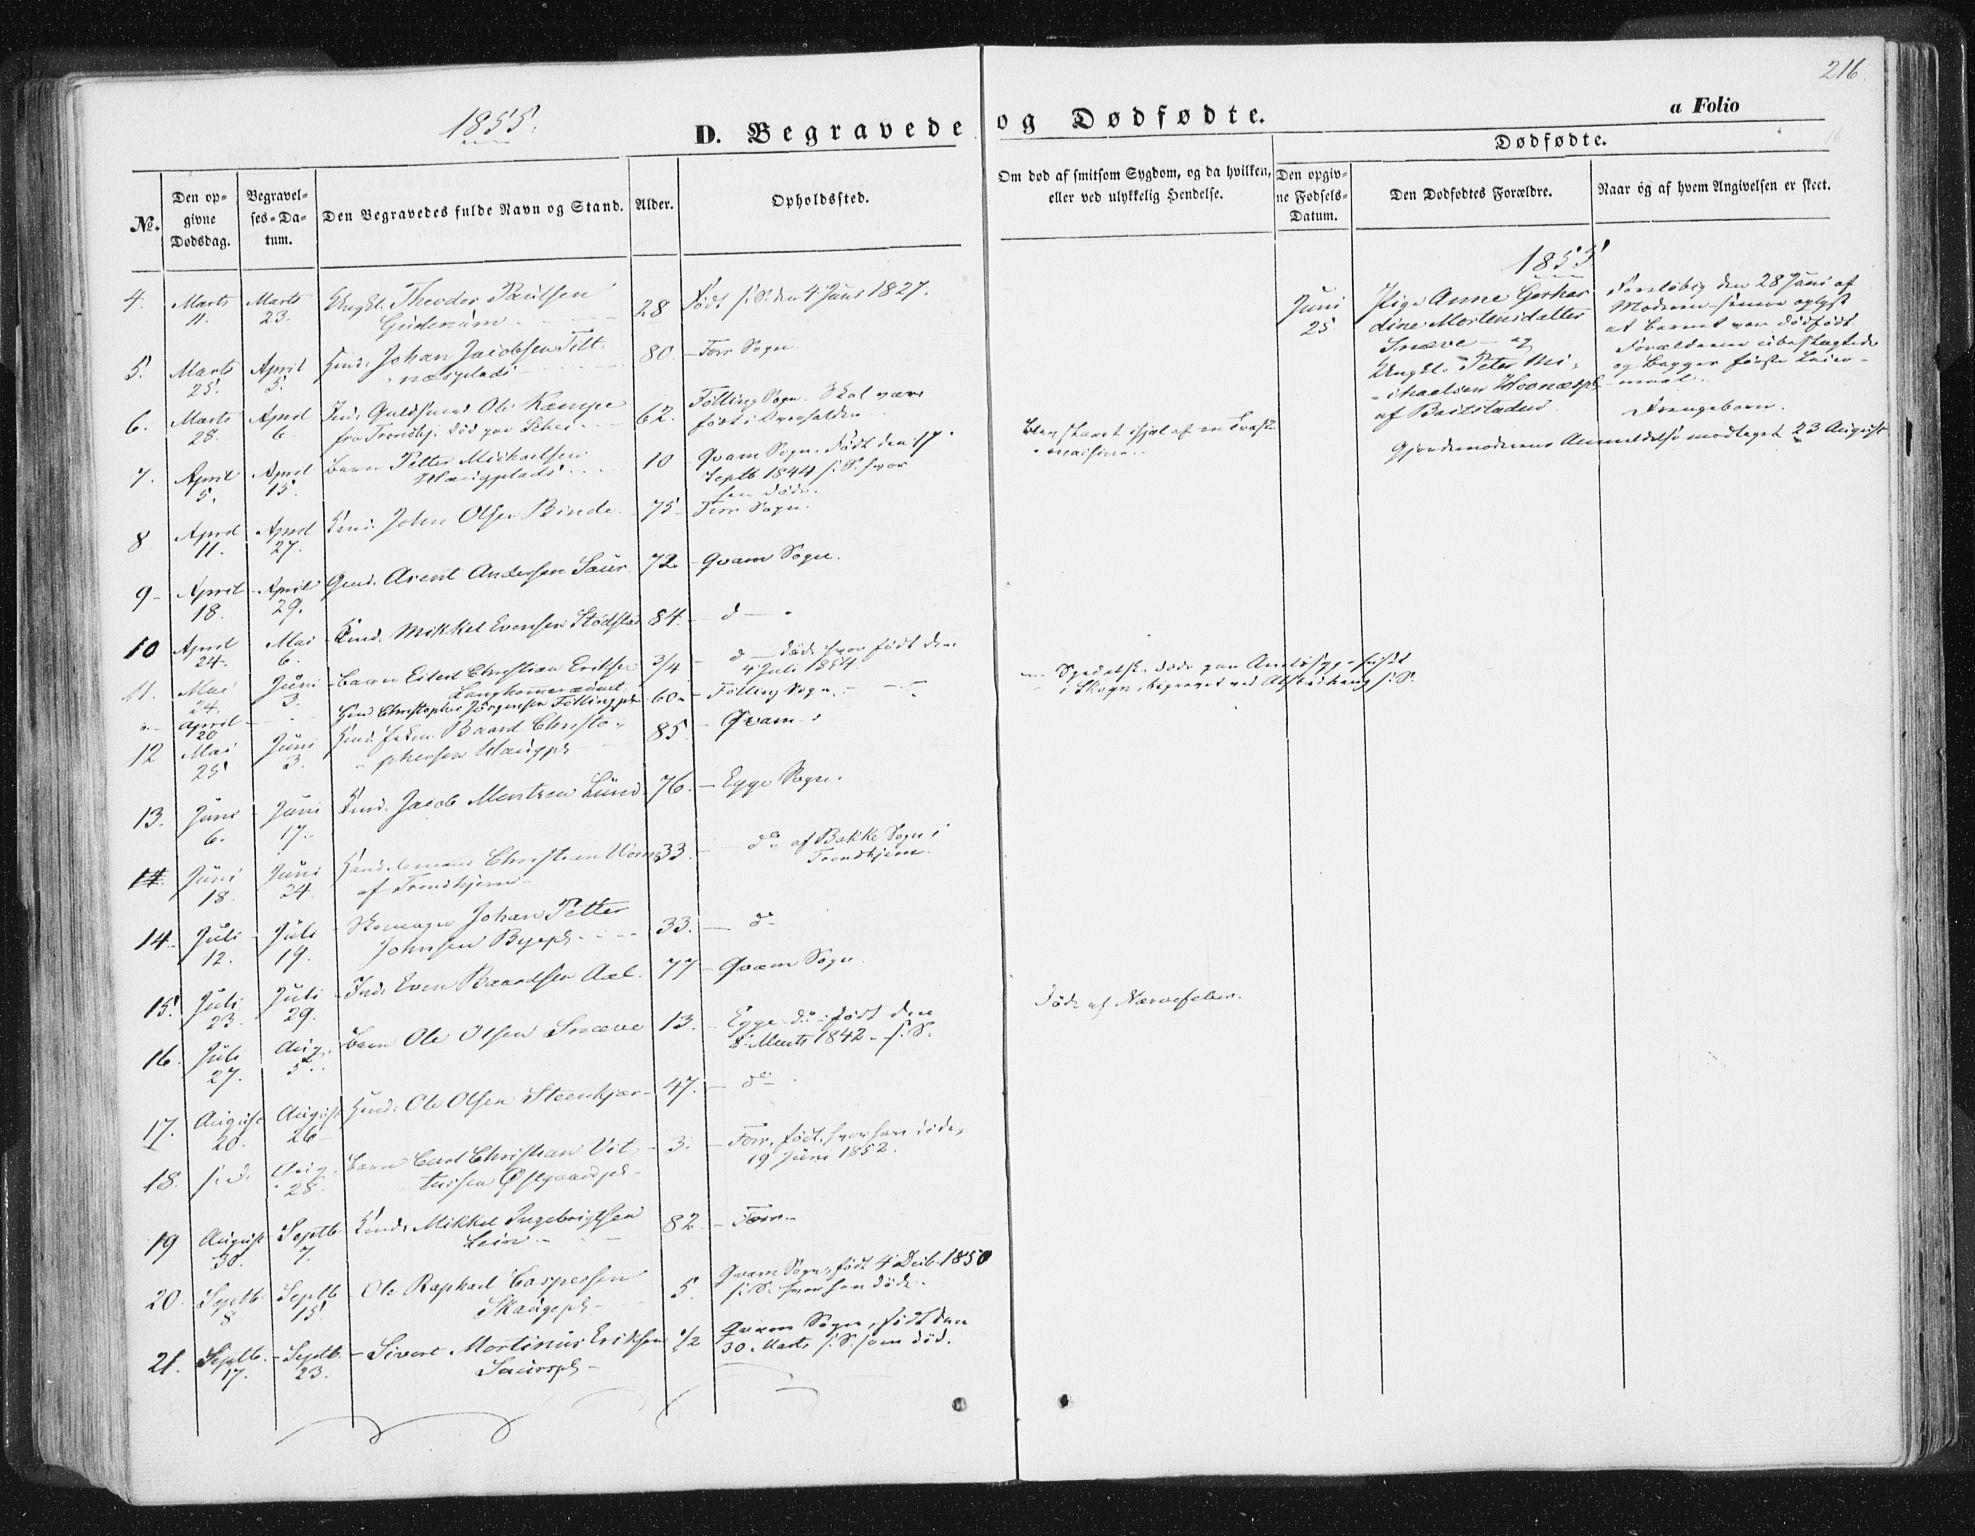 216.
1855.
D. Begravede og Dødfødte.
a Folio
No.
Den opgivne Dødsdag.
Begravelses-Datum.
Den Begravedes fulde Navn og Stand.
Alder.
Opholdssted.
Om død af smitsom Sygdom, og da hvilken, eller ved ulykkelig Hendelse.
Dødfødte.
Den opgivne Fødsels-Datum.
Den Dødfødtes Forældre.
Naar og af hvem Angivelsen er skeet.
4. Marts 11. Marts 23. Ungkl. Theodor Paulsen
28 Født f. S. den 4 Juni 1827.
5. Marts 25. April 5. Johan Jacobsen Tilt-
næsplads 80. Forr Sogn.
6. Marts 28. April 6. Inds. Guldsmed Ole Kæmpe
fra Trondhj. død paa 62. Følling Sogn. Skal være
født i
7. April 5. April 15. Barn Petter Michaelsen
Haugplads 10 Qvam Sogn. Født den 17
Septb 1844 f. S. hvor
han døde.
Blev skaaret ihjel af en Træsk-
maskine.
8 April 11. April 27. John Olsen Binde 75 Forr Sogn.
9 April 18. April 29. Arent Andersen Saur 72 Qvam Sogn.
10 April 24. Mai 6. Mikkel Evensen Stødstad 84. d
11. Mai 24. Juni 3. Barn Eilert Christian Eriksen
Langhammer 3/4 d døde hvor født den
4 Juli 1854.
April 20 Christopher Jørgensen Føllingpl. 60 Følling Sogn.
Spedalsk. døde paa
i Skogn, begravet ved Alstadhaug f. S.
12 Mai 25 Juni 3. Baard Christo-
phersen Haugpl. 85 Qvam
13. Juni 6. Juni 17. Jacob Lund 76. Egge Sogn.
14. Juni 18. Juni 24. Christian
af Trondhjem 33. do af Bakke Sogn i
Trondhjem.
14. Juli 12. Juli 19. Skomager Johan Petter
Johnsen Byepl. 33. do
15. Juli 23. Juli 29. Inds. Even Baardsen Aal. 77 Qvam Sogn.
16. Juli 27. Aug. 5. Barn Ole Olsen Snæve 13. Egge do født den
8 Marts 1842 f. S.
Døde af Nervefeber.
17. August 20. August 26 Ole Olsen Steenkjær 47. do
18. s. d. Aug. 28. Barn Carl Christian Vit-
tersen Østgaardspl. 3. Forr, født, hvor han døde,
19 Juni 1852.
19 August 30. Septb 7. Mikkel Ingebrigtsen
Lein 82. Forr
20. Septb 8 Septb 15. Ole Raphael Caspersen
Skaugepl. 5. Qvam Sogn, født 4 Decb. 1850
f. S. hvor han døde.
21. Septb. 17. Septb. 23. Sivert Mortinus Eriksen
Saurspl. 1/2 Qvam Sogn, født den
30 Marts f. S. som død.
1855
Juni 25
Pige Anne Gerhar-
dine Mortensdatter
Snæve og
Ungkl. Peter Mi-
chaelsen
af Beitstaden.
Foreløbig den 28 Juni af
Moderen senere oplyst
at Barnet var dødfødt
Forældrene ubeslægtede
og Begges første Leier-
maal.
Drengebarn.
Gjordemoderens Anmeldelse modtaget 23 August